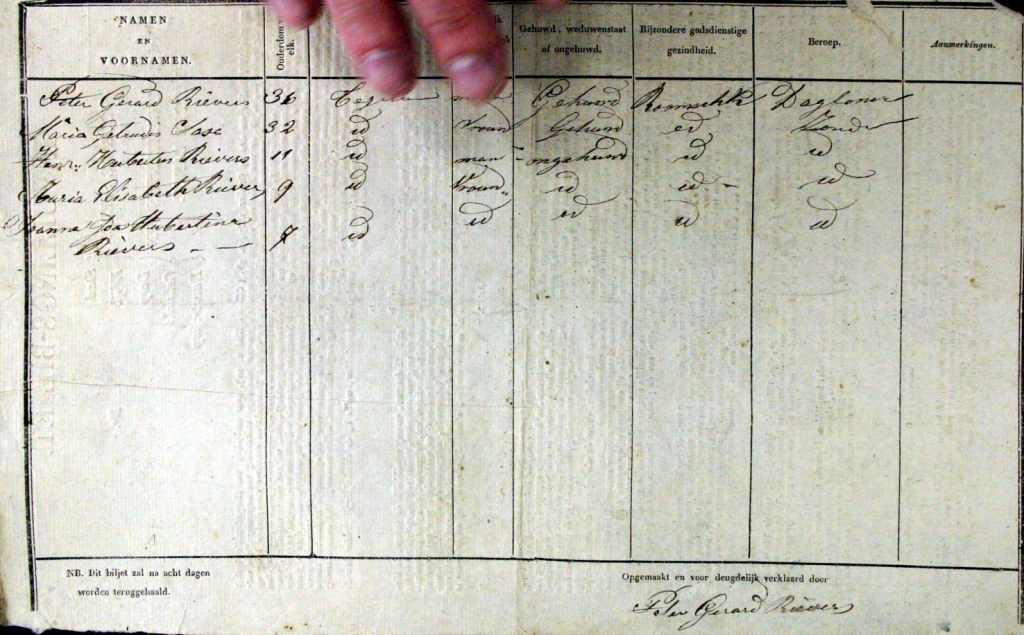 NAMEN
EN
VOORNAMEN.
Ouderdom
Gehuwd, weduwenstaat
of ongehuwd.
Bijzondere godsdienstige
gezindheid.
Beroep.
Aanmerkingen.
Peter Gerard Rievers 36 man Gehuwd Dagloner
Maria 32 id vrouw Gehuwd id
Hubertus Rievers 11 id man ongehuwd id id
Maria Elisabeth Riever 9 id vrouw id id id
Joanna Hubertina id id id id
Rievers 7 id
NB. Dit biljet zal na acht dagen
worden teruggehaald.
Opgemaakt en voor deugdelijk verklaard door
Peter Gerard Riever